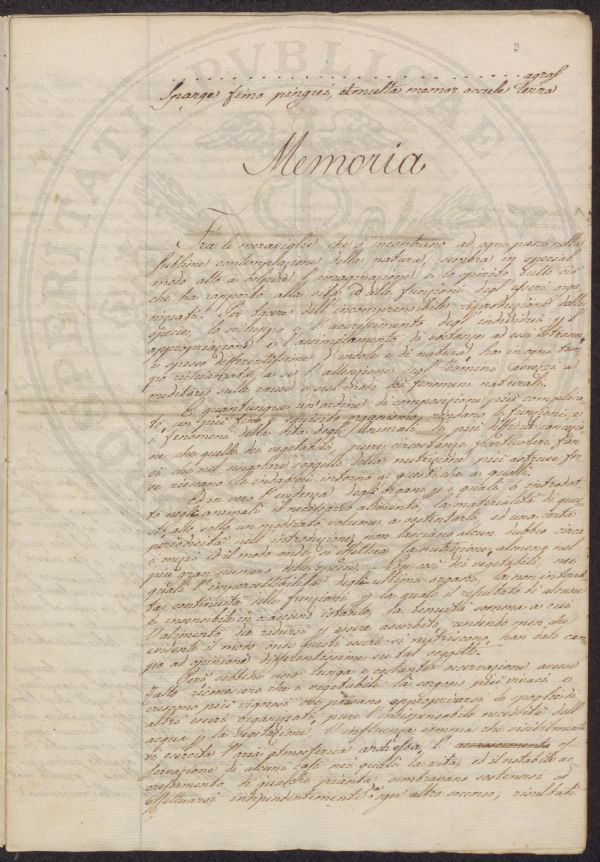 agros
Sparge fimo pingui, et multa memor occule terra
Memoria
Fra le meraviglie che s'incontrano ad ogni passo nella
sublime contemplazione della natura, sembra in special
modo atto a colpire l'imaginazione e lo spirito tutto ciò
che ha rapporto alla vita, ed alle funzioni degli esseri orga
nizzati. Per tacere dell'incomprensibile riproduzione delle
specie, lo sviluppo e l'accrescimento degl'individui p
appropriazione e l'assimilamento di sostanze ad essi estranee
e spesso differentissime d'indole e di natura, ha in ogni tem
po richiamato a se l'attenzione degli uomini avvezzi a
meditare sulle cause e sul modo dei fenomeni naturali.
E quantunque un'ordine di composizione più complica
to, un più fino e squisito organismo, rendano le funzioni, e
i fenomeni della vita degli Animali di più difficil concezio
ne che quelle dei vegetabili, pure circostanze particolari fan
sì che nel singolare oggetto della nutrizione più astruse for
se riescano le indagini intorno a questi che a quelli.
Ed in vero l'evidenza degli organi p i quali è introdot
to negli animali il necessario alimento, la materialità di que
sto, ed una certa
periodicità nell'introduzione, non lasciano alcun dubbio circa
i mezzi ed il modo onde si effettua la nutrizione, almeno nel
più gran numero delle specie. Non così dei vegetabili, nei
quali l'impercettibilità degli ultimi organi, la non interrot
ta continuità delle funzioni p la quale il resultato di alcune
è insensibile in ciascuno istante, la tenuità somma a cui
l'alimento ha ridursi p essere assorbito, rendendo men che
evidente il modo onde questi esseri si nutriscono, han dato cam
po ad opinioni disparatissime su tal soggetto.
Però sebbene una lunga e costante osservazione avesse
fatto riconoscere che i vegetabili là sorgono più vivaci e
crescono più vigorosi ove possano appropriarsi le spoglie di
altri esseri organizzati, pure l'indispensabile necessità dell'
acqua p la vegetazione, l'influenza somma che visibilmente
vi esercita l'aria atmosferica anch'essa, l' os
servazione di alcuni casi nei quali la vita, ed il notabile ac
crescimento di qualche pianta sembravano sostenersi ed
effettuarsi indipendentemente da ogn'altro soccorso, risultati